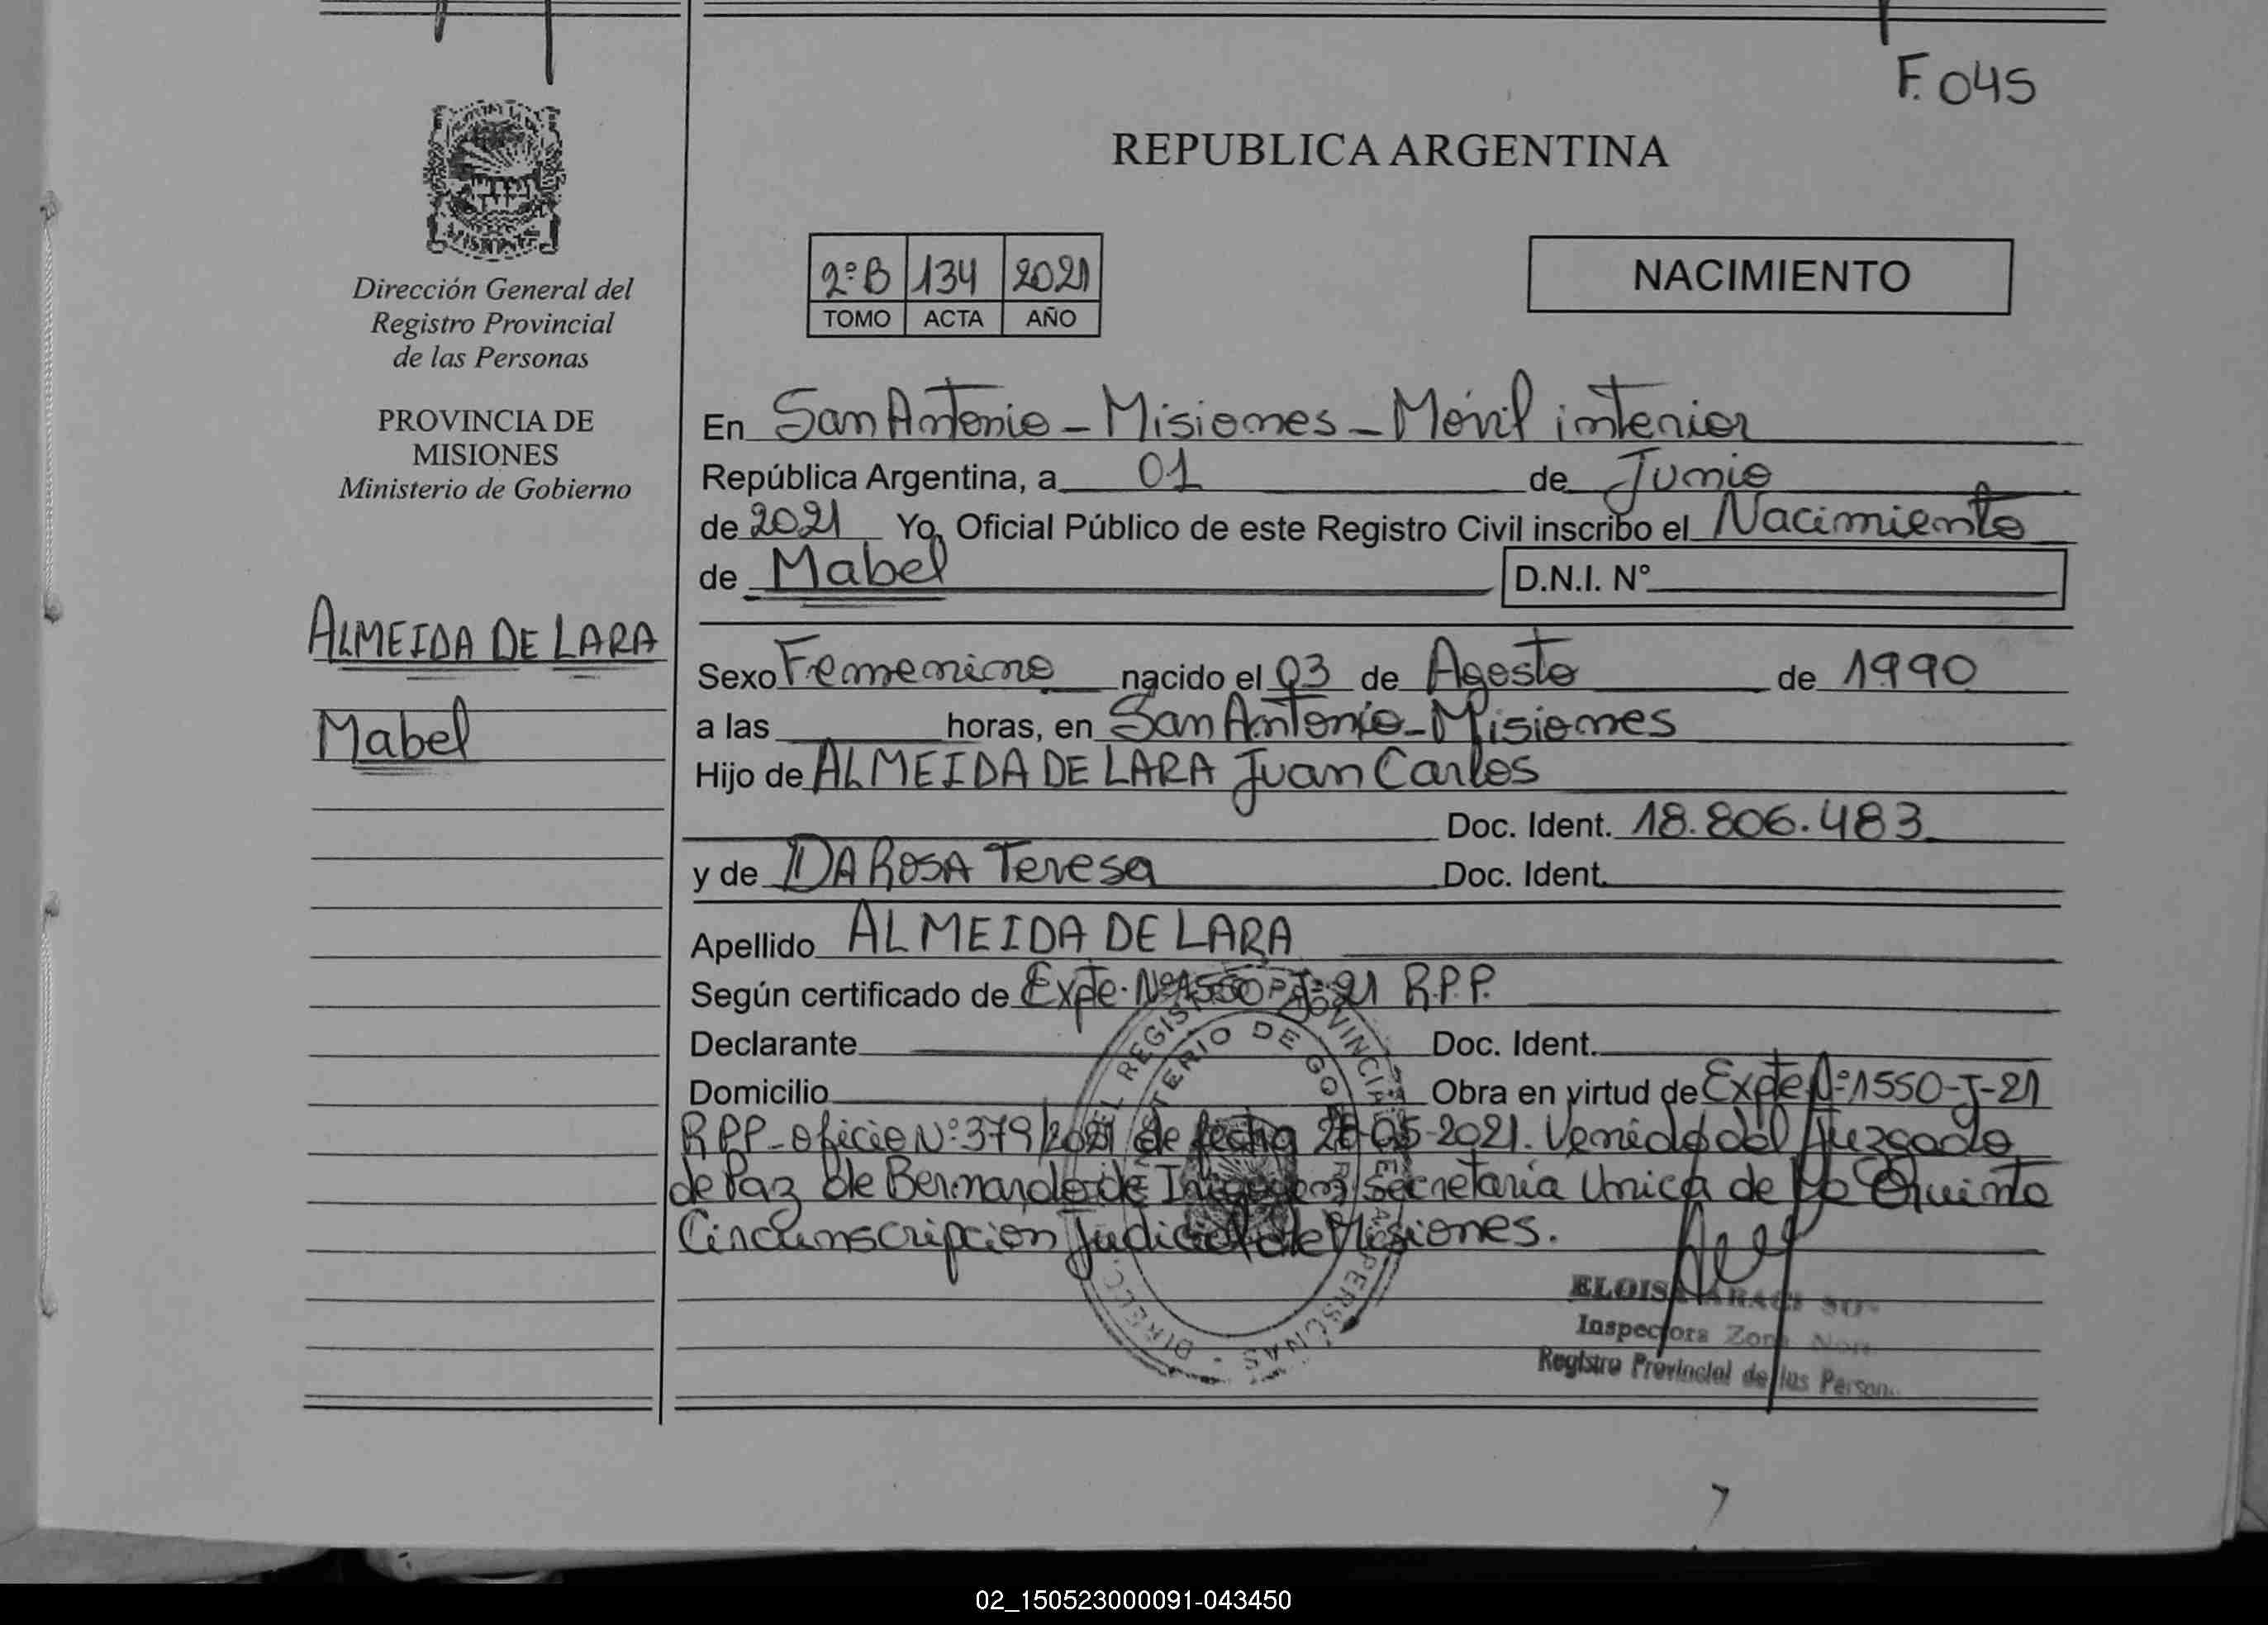 F. 045
REPUBLICA ARGENTINA
2º B 134 2021
TOMO ACTA AÑO
NACIMIENTO
Dirección General del
Registro Provincial
de las Personas
PROVINCIA DE
MISIONES
Ministerio de Gobierno
ALMEIDA DE LARA
Mabel
En San Antonio - Misiones - Móvil interior
República Argentina, a 01 de Junio
de 2021 Yo, Oficial Público de este Registro Civil inscribo el Nacimiento
de Mabel D.N.I. Nº
Sexo Femenino nacido el 03 de Agosto de 1990
a las horas, en San Antonio - Misiones
Hijo de ALMEIDA DE LARA Juan Carlos
Doc. Ident. 18.806.483
y de DA ROSA Teresa Doc. Ident.
Apellido ALMEIDA DE LARA
Según certificado de Expte. Nº 1550-J-21 R.P.P.
Declarante Doc. Ident.
Domicilio Obra en virtud de Expte Nº 1550-J-21
RPP - oficio Nº 379/2021 de fecha -05-2021. Venido del Juzgado
de Paz de Bernardo de Irigoyen, Secretaría Unica de la Quinta
Circunscripción Judicial de Misiones.
ELOISA
Inspectora Zona
Registro Provincial de las Person
02_150523000091-043450